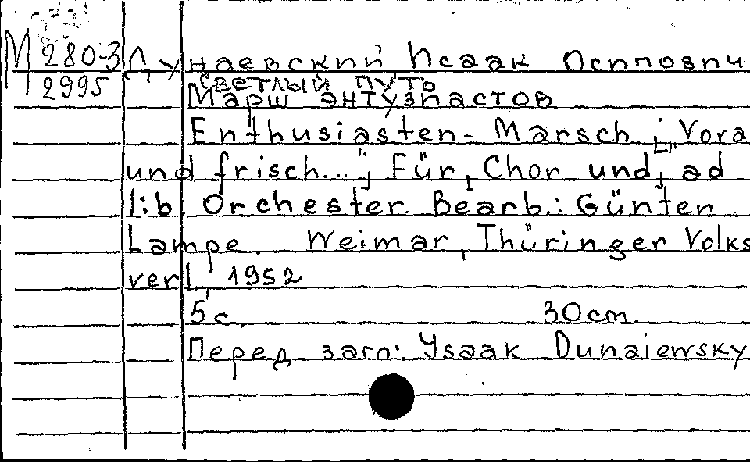 М 280-3 Дунаевский Исаак Осипович
2995 СВЕТЛЫЙ ПУТЬ
Марш энтузиастов
Enthusiasten-Marsch ["Vora
und frisch..."] Für Chor und ad
lib Orchester Bearb.: Günter
Lampe. Weimar, Thüringer Volks
verl, 1952
5 с. 30 cm.
Перед загл: Ysaak Dunajewsky